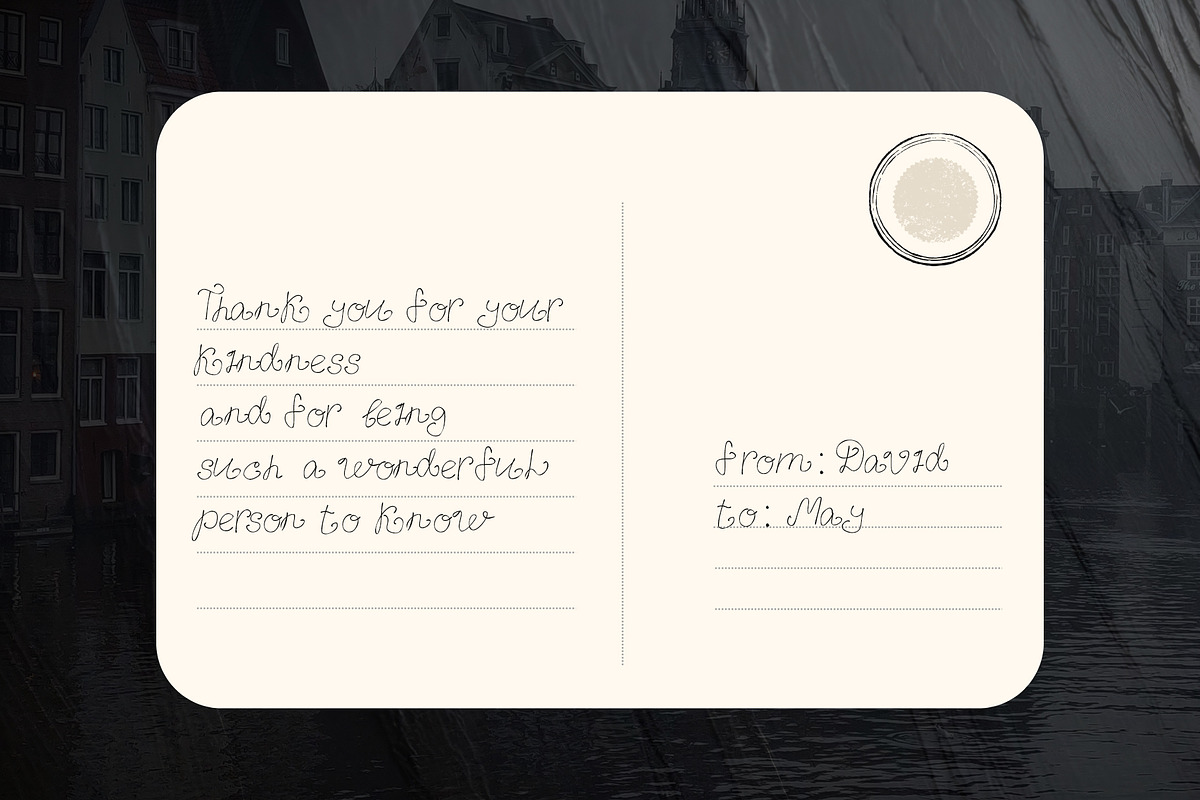 Thank you for your
Kindness
and for being
such a wonderful
person to know
from: David
to: May